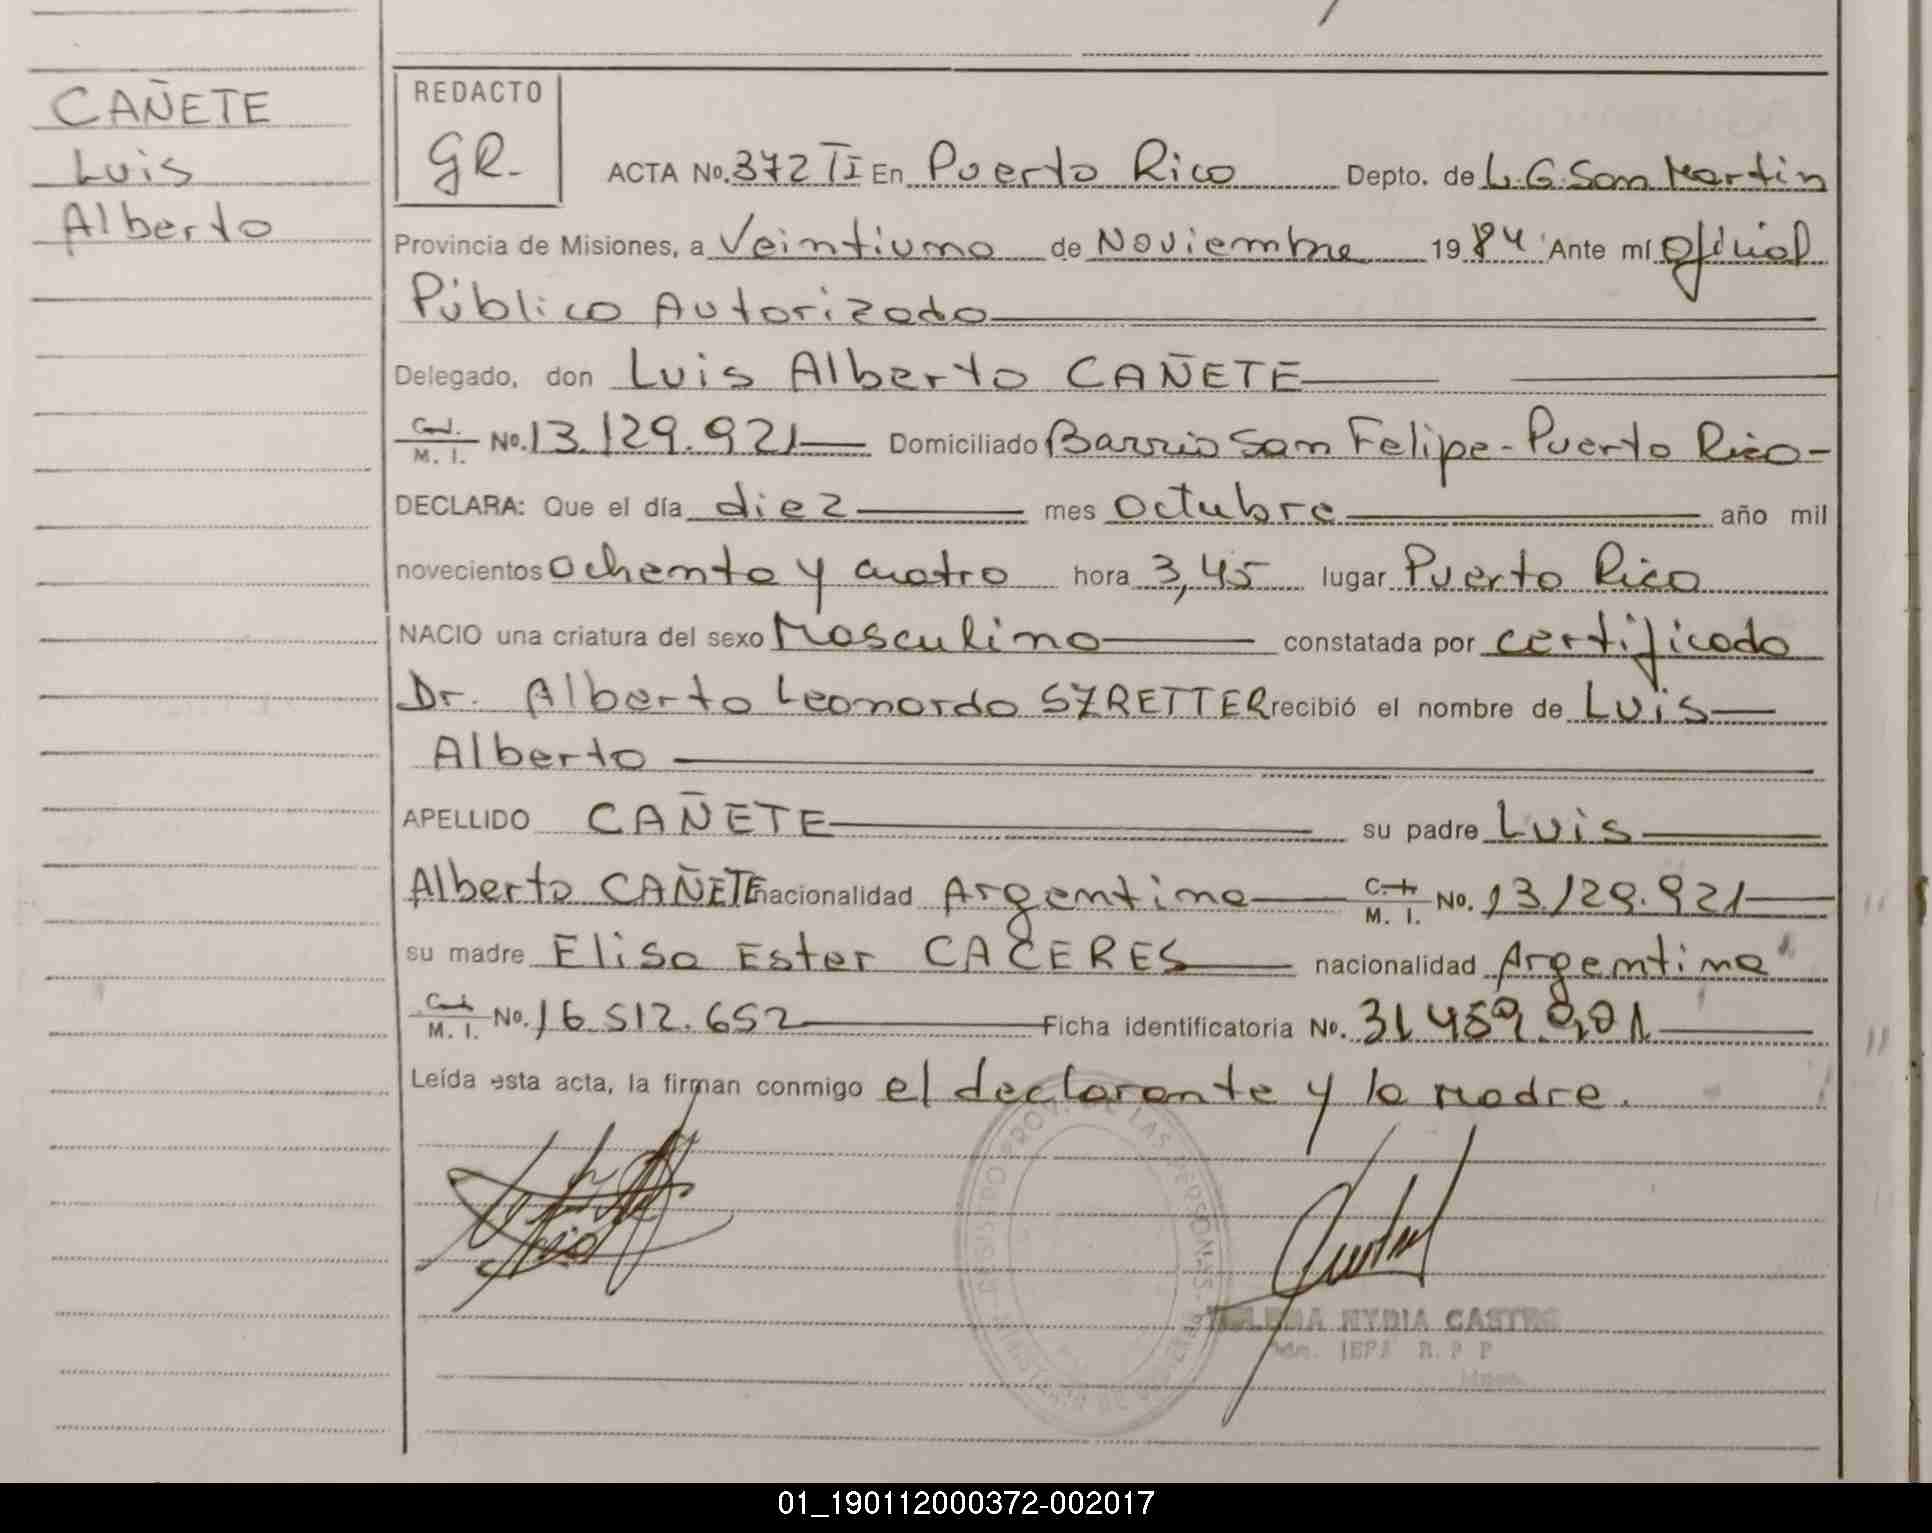 CAÑETE
Luis
Alberto
REDACTO
GR.
ACTA No. 372 TI En Puerto Rico Depto. de L.G. San Martin
Provincia de Misiones, a Veintiuno de Noviembre 1984 Ante mí Oficial
Público Autorizado
Delegado, don Luis Alberto CAÑETE
M. I. No. 13.129.921 Domiciliado Barrio San Felipe - Puerto Rico -
DECLARA: Que el día diez mes octubre año mil
novecientos ochenta y cuatro hora 3,45 lugar Puerto Rico
NACIO una criatura del sexo Masculino constatada por certificado
Dr. Alberto Leonardo SZRETTER recibió el nombre de Luis
Alberto
APELLIDO CAÑETE su padre Luis
Alberto CAÑETE nacionalidad Argentina M. I. No. 13.129.921
su madre Elisa Ester CACERES nacionalidad Argentina
M. I. No. 16.512.652 Ficha identificatoria No. 31.459.
Leída esta acta, la firman conmigo el declarante y la madre.
REGISTRO PROV. DE LAS PERSONAS
NYDIA CASTRO
01_190112000372-002017